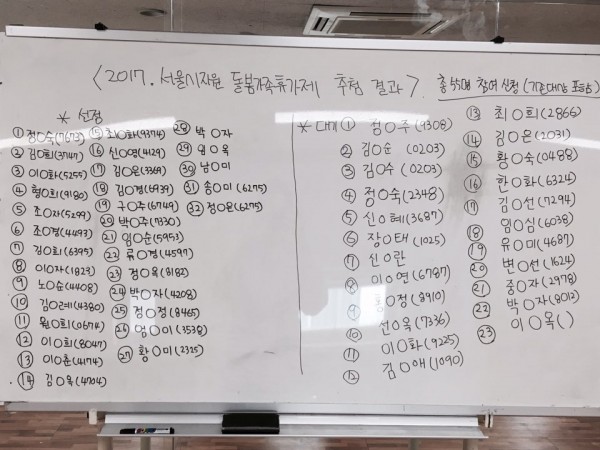 <2017. 서울시지원 돌봄가족휴가제 추첨 결과>
총 55명 참여 신청 (기존대상 포함)
* 선정
① 정O숙(7673)
② 김O희(3747)
③ 이O화(5255)
④ 형O희(9180)
⑤ 조O자(5299)
⑥ 조O경(4493)
⑦ 김O희(6395)
⑧ 이O자(1829)
⑨ 노O순(4408)
⑩ 김O례(4380)
⑪ 원O희(0674)
⑫ 이O희(8047)
⑬ 이O춘(4174)
⑭ 김O욱(4704)
⑮ 최O화(9374)
⑯ 신O영(4129)
⑰ 김O은(3369)
⑱ 김O경(6939)
⑲ 구O주(6749)
⑳ 박O주(7330)
㉑ 임O순(5953)
㉒ 류O경(4597)
㉓ 정O욱(8182)
㉔ 박O자(4208)
㉕ 정O정(8465)
㉖ 염O미(3538)
㉗ 황O미(2325)
㉘ 박O자
㉙ 엄O옥
㉚ 남O미
㉛ 송O미(6275)
㉜ 정O은(6275)
* 대기
① 정O주(9308)
② 김O순(0203)
③ 김O수(0203)
④ 정O숙(2348)
⑤ 신O혜(3687)
⑥ 장O태(1025)
⑦ 신O란
⑧ 이O연(6787)
⑨ 홍O정(8910)
⑩ 선O옥(7336)
⑪ 이O화(9225)
⑫ 김O애(1090)
⑬ 최O희(2866)
⑭ 김O은(2031)
⑮ 황O숙(0488)
⑯ 한O화(6324)
⑰ 김O선(7294)
⑱ 임O심(6038)
⑲ 유O미(4687)
⑳ 변O선(1624)
㉑ 중O자(2978)
㉒ 박O자(8012)
㉓ 이O옥( )